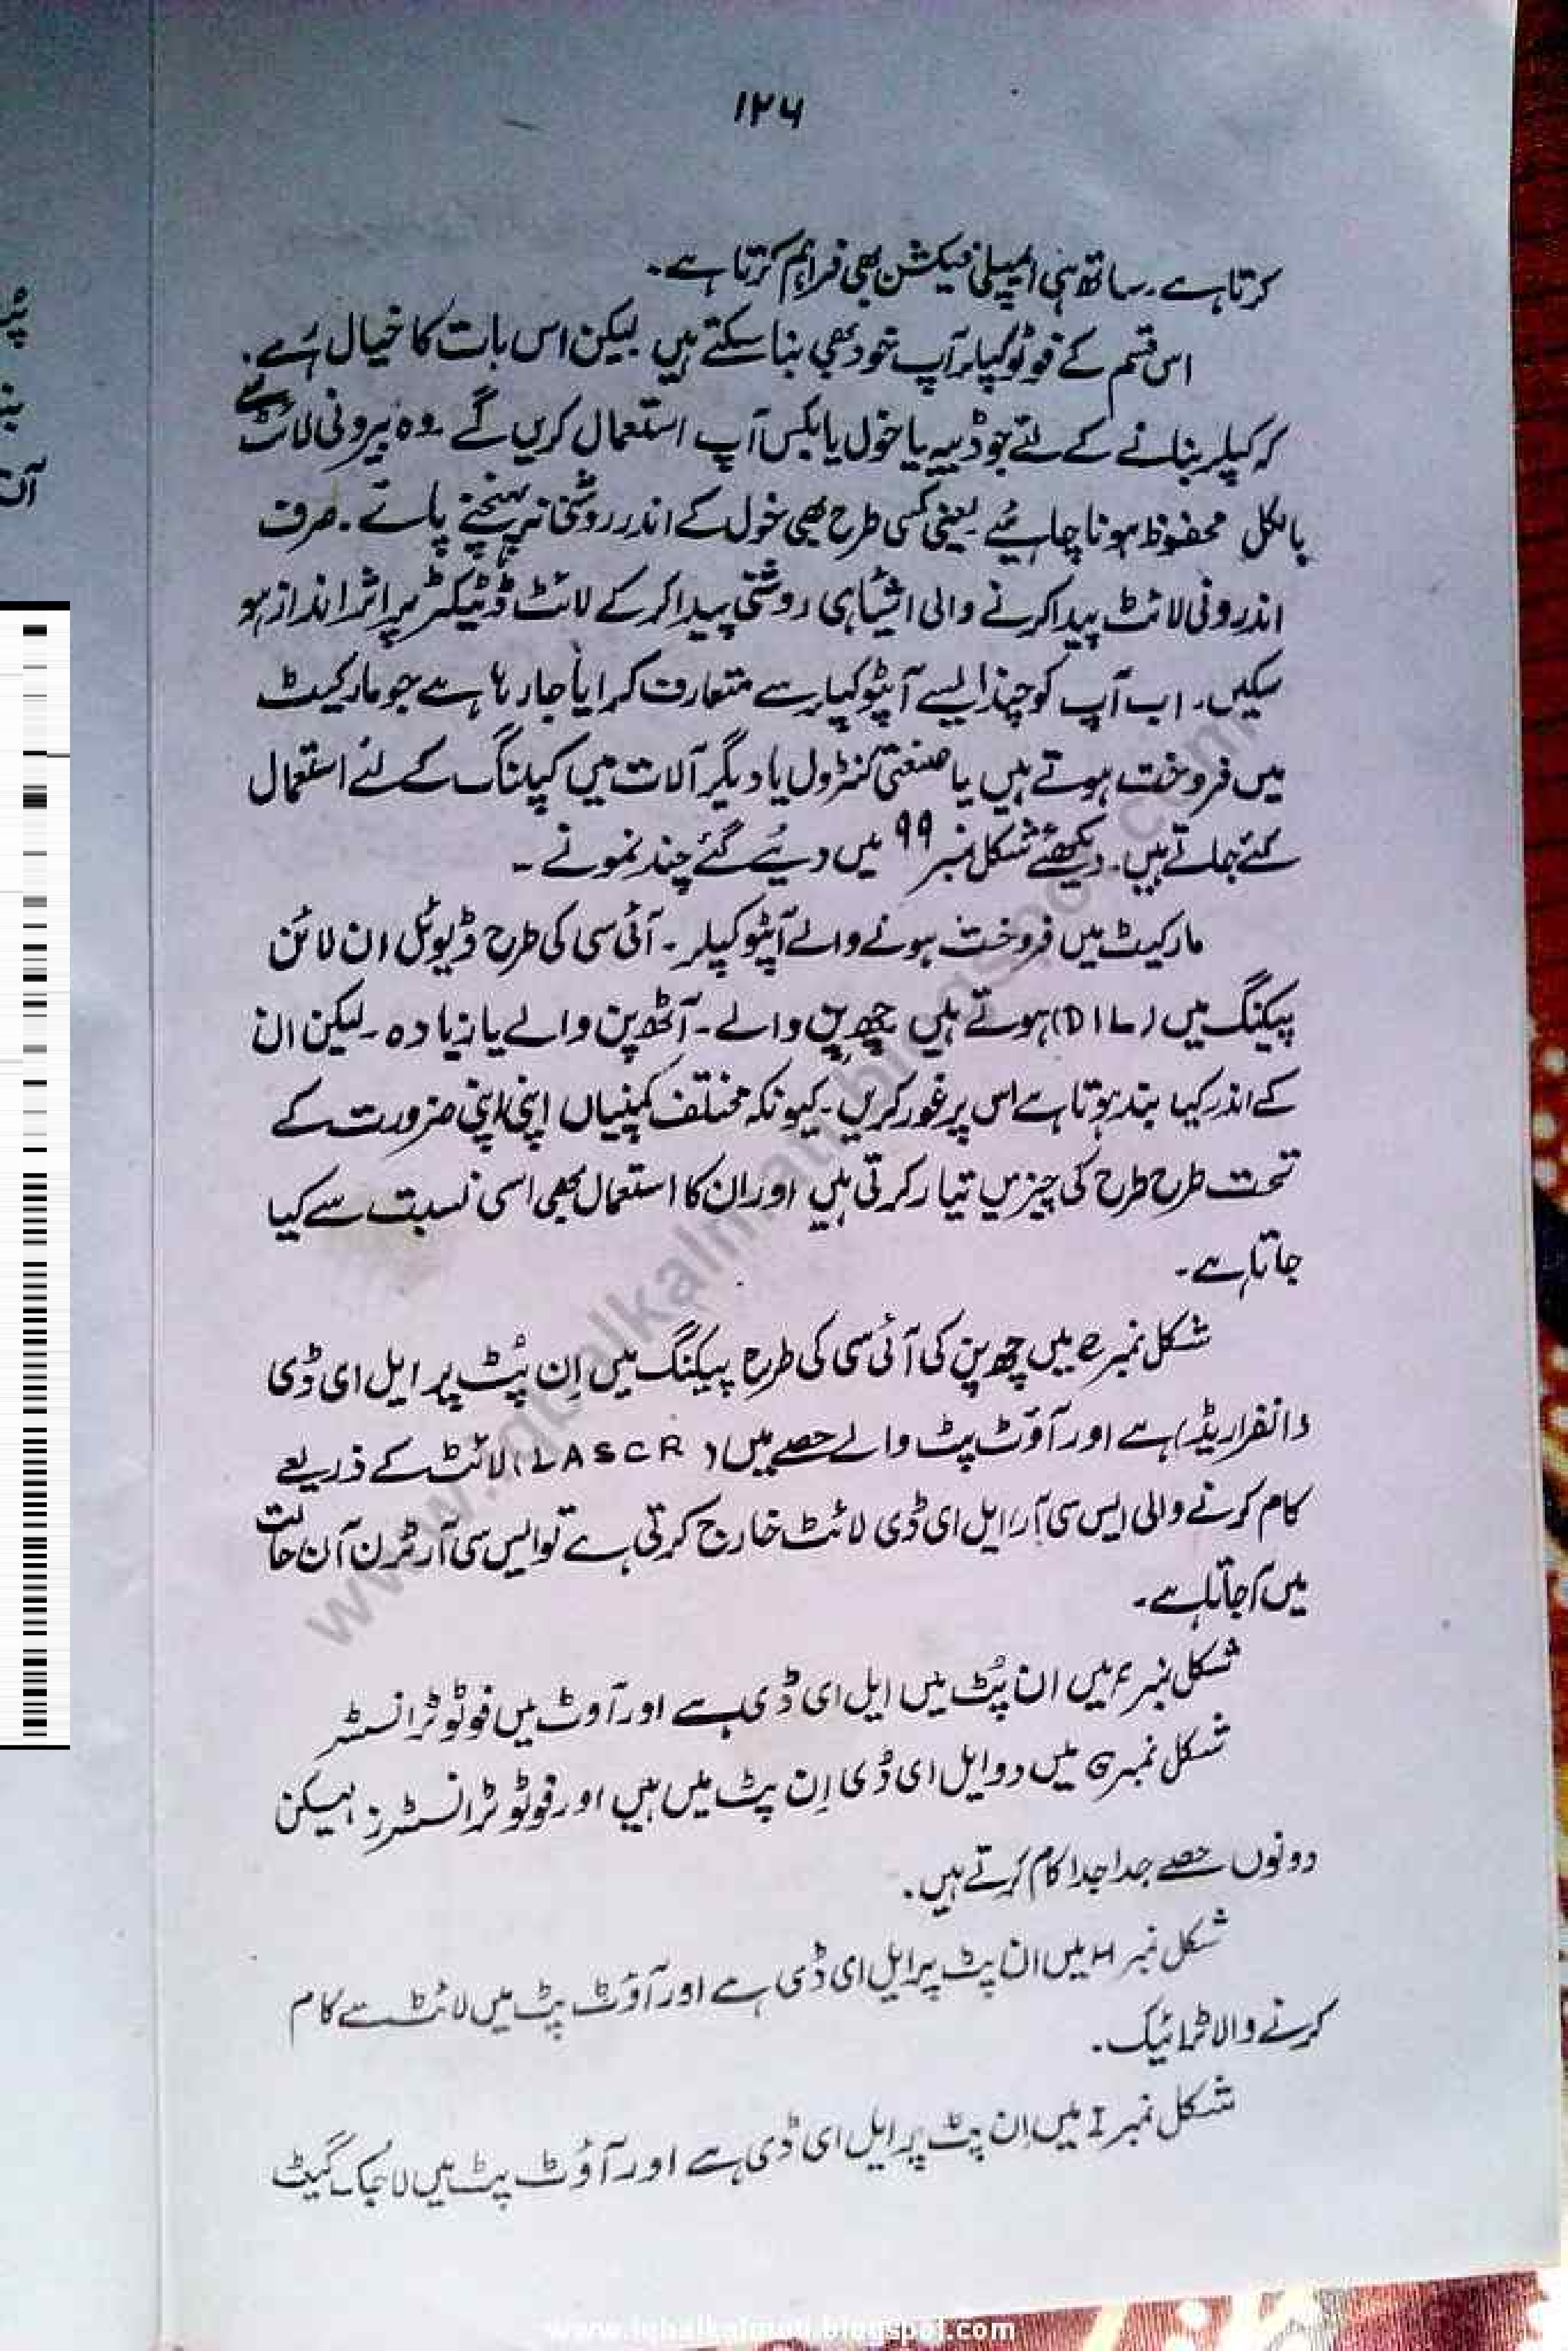 ۱۲۶
کرتا ہے۔ ساتھ ہی ایمپلی فیکشن بھی فراہم کرتا ہے۔
اس قسم کے فوٹو کپلر آپ خود بھی بنا سکتے ہیں لیکن اس بات کا خیال رہے۔
کہ کپلر بنانے کے لئے جو ڈبیہ یا خول یا بکس آپ استعمال کریں گے۔ وہ بیرونی لائٹ سے
بالکل محفوظ ہونا چاہئیے یعنی کسی طرح بھی خول کے اندر روشنی نہ پہنچنے پائے۔ صرف
اندرونی لائٹ پیدا کرنے والی اشیا ہی روشنی پیدا کر کے لائٹ ڈٹیکٹر پر اثر انداز ہو
سکیں۔ اب آپ کو چند ایسے آپٹو کپلر سے متعارف کرایا جا رہا ہے جو مارکیٹ
میں فروخت ہوتے ہیں یا صنعتی کنٹرول یا دیگر آلات میں کپلنگ کے لئے استعمال
کئے جاتے ہیں۔ دیکھئے شکل نمبر ۹۹ میں دیئے گئے چند نمونے۔
مارکیٹ میں فروخت ہونے والے آپٹو کپلر۔ آئی سی کی طرح ڈیوئل ان لائن
پیکنگ میں (DIL) ہوتے ہیں چھ پن والے۔ آٹھ پن والے یا زیادہ۔ لیکن ان
کے اندر کیا بند ہوتا ہے اس پر غور کریں۔ کیونکہ مختلف کمپنیاں اپنی اپنی ضرورت کے
تحت طرح طرح کی چیزیں تیار کرتی ہیں اور ان کا استعمال بھی اسی نسبت سے کیا
جاتا ہے۔
شکل نمبر e میں چھ پن کی آئی سی کی طرح پیکنگ میں اِن پُٹ پر ایل ای ڈی
(انفراریڈ) ہے اور آؤٹ پٹ والے حصے میں (LASCR) لائٹ کے ذریعے
کام کرنے والی ایس سی آر، ایل ای ڈی لائٹ خارج کرتی ہے تو ایس سی آر ٹرن آن حالت
میں آجاتا ہے۔
شکل نمبر F میں ان پُٹ میں ایل ای ڈی ہے اور آوٹ میں فوٹو ٹرانسسٹر
شکل نمبر G میں دو ایل ای ڈی اِن پٹ میں ہیں اور فوٹو ٹرانسسٹرز لیکن
دونوں حصے جدا جدا کام کرتے ہیں۔
شکل نمبر H میں ان پٹ پر ایل ای ڈی ہے اور آؤٹ پٹ میں لائٹ سے کام
کرنے والا ٹرائیک۔
شکل نمبر I میں اِن پٹ پر ایل ای ڈی ہے اور آؤٹ پٹ میں لاجک گیٹ
www.iqbalkalmati.blogspot.com
www.iqbalkalmati.blogspot.com